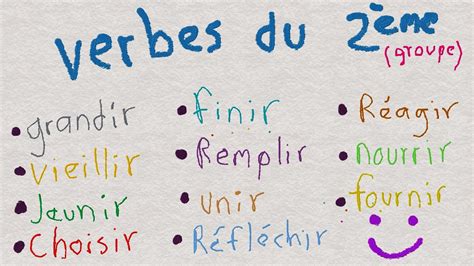 Verbes du 2ème
(groupe)
• grandir
• Vieillir
• Jaunir
• Choisir
• Finir
• Remplir
• unir
• Réfléchir
• Réagir
• nourrir
• fournir